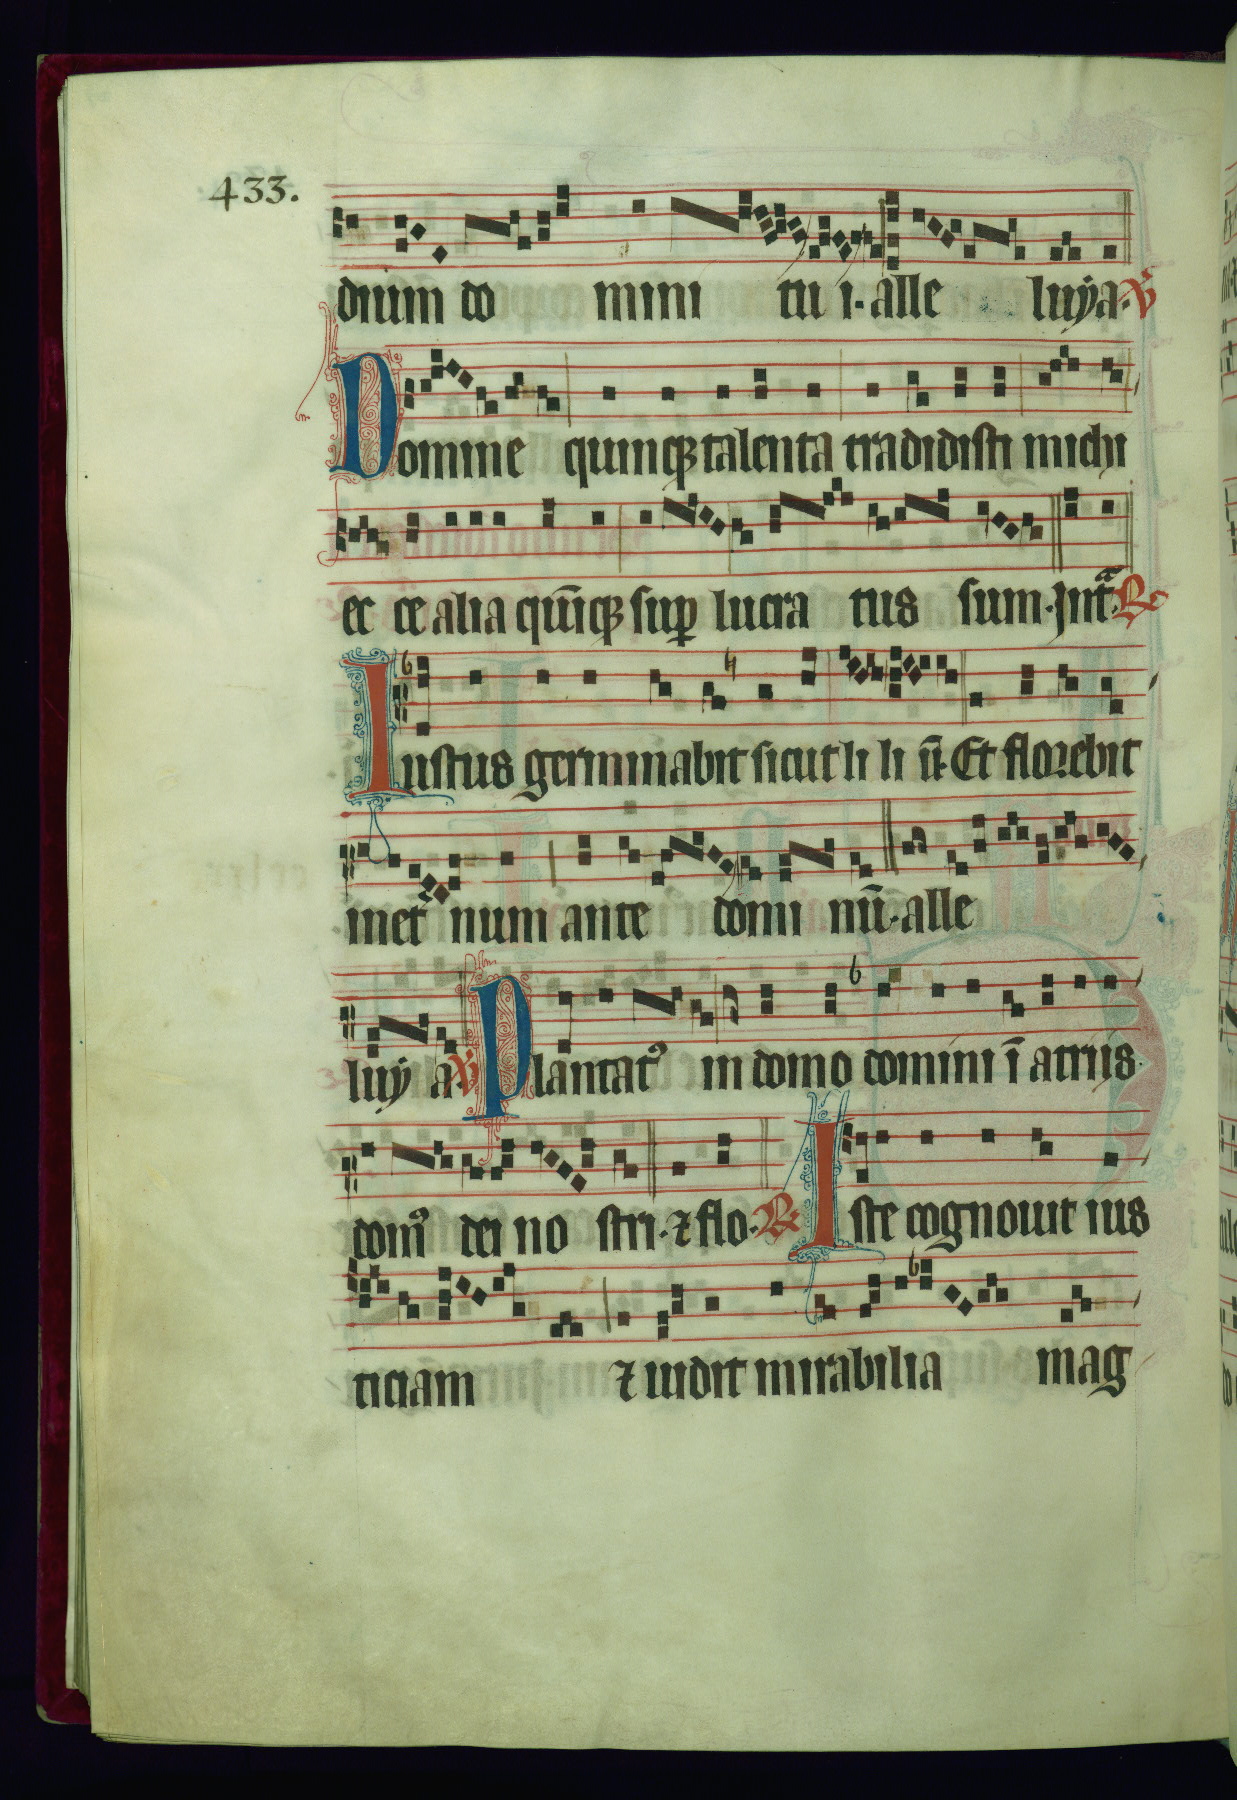 433.
dium do mini tu i. alle luẏa. ℣
Domine quinqꝫ talenta tradidisti michi
ec ce alia qūiqꝫ suꝑ lucra tus sum. Intͣ. ℟
Iustus germinabit sicut li li ū. Et florebit
inet̄ num ante domi nū. alle
luẏ a. ℣ Plantatꝰ in domo domini ī atriis
domꝰ dei no stri. ⁊ flo. ℟ Iste cognouit ius
ticiam ⁊ uidit mirabilia mag